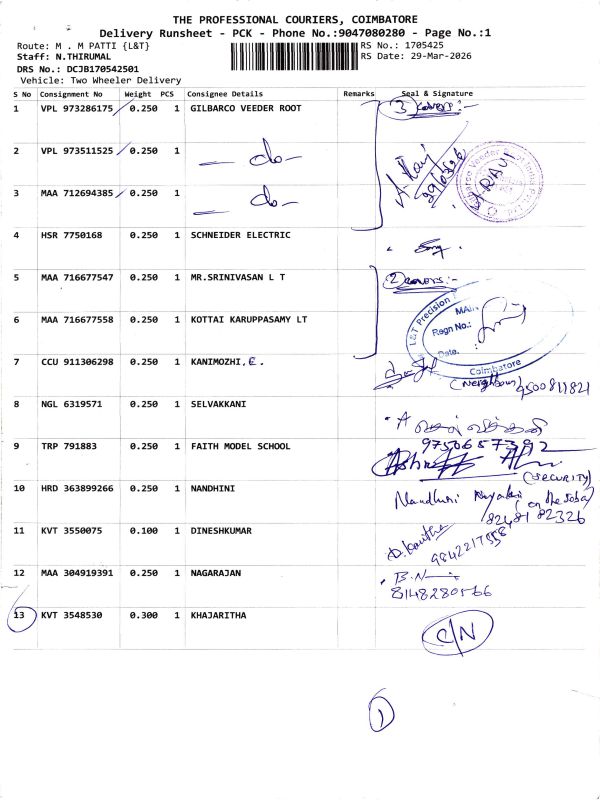 THE PROFESSIONAL COURIERS, COIMBATORE
Delivery Runsheet - PCK - Phone No.:9047080280 - Page No.:1
Route: M . M PATTI {L&T} RS No.: 1705425
Staff: N.THIRUMAL RS Date: 29-Mar-2026
DRS No.: DCJB170542501
Vehicle: Two Wheeler Delivery
S No Consignment No Weight PCS Consignee Details Remarks Seal & Signature
1 VPL 973286175 0.250 1 GILBARCO VEEDER ROOT 3 Covers:-
2 VPL 973511525 0.250 1 - do -
3 MAA 712694385 0.250 1 - do -
4 HSR 7750168 0.250 1 SCHNEIDER ELECTRIC
5 MAA 716677547 0.250 1 MR.SRINIVASAN L T 2 Covers:-
L&T Precision
6 MAA 716677558 0.250 1 KOTTAI KARUPPASAMY LT
Regn No.:
Date.
Coimbatore
7 CCU 911306298 0.250 1 KANIMOZHI, E.
(Neighbour) 9500811821
8 NGL 6319571 0.250 1 SELVAKKANI
A செல்வக்கனி
9750657392
9 TRP 791883 0.250 1 FAITH MODEL SCHOOL
(SECURITY)
10 HRD 363899266 0.250 1 NANDHINI Nandhini
82481 82326
11 KVT 3550075 0.100 1 DINESHKUMAR
D. Kavitha
12 MAA 304919391 0.250 1 NAGARAJAN B.N
13 KVT 3548530 0.300 1 KHAJARITHA C/N
1